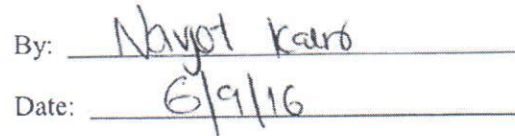 By: Nayot Kauro
Date: 6/9/16